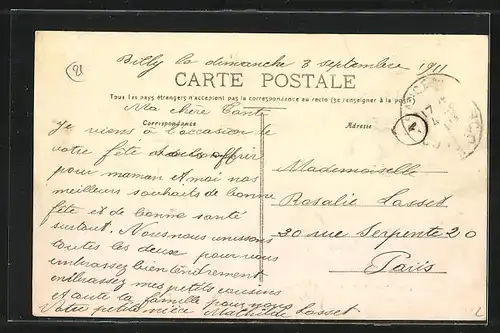 Billy le dimanche 3 septembre 1911
CARTE POSTALE
Tous les pays étrangers n'acceptent pas la correspondance au recto (se renseigner à la poste)
Ma chère Tante
Correspondance
Adresse
Je viens à l'occasion de
votre fête vous offrir
pour maman et moi nos
meilleurs souhaits de bonne
fête et de bonne santé
surtout. Nous nous unissons
toutes les deux pour vous
embrasser bien tendrement
embrassez mes petits cousins
et toute la famille pour nous
Votre petite nièce Mathilde Lasset
Mademoiselle
Rosalie Lasset
30 rue Serpente 20
Paris